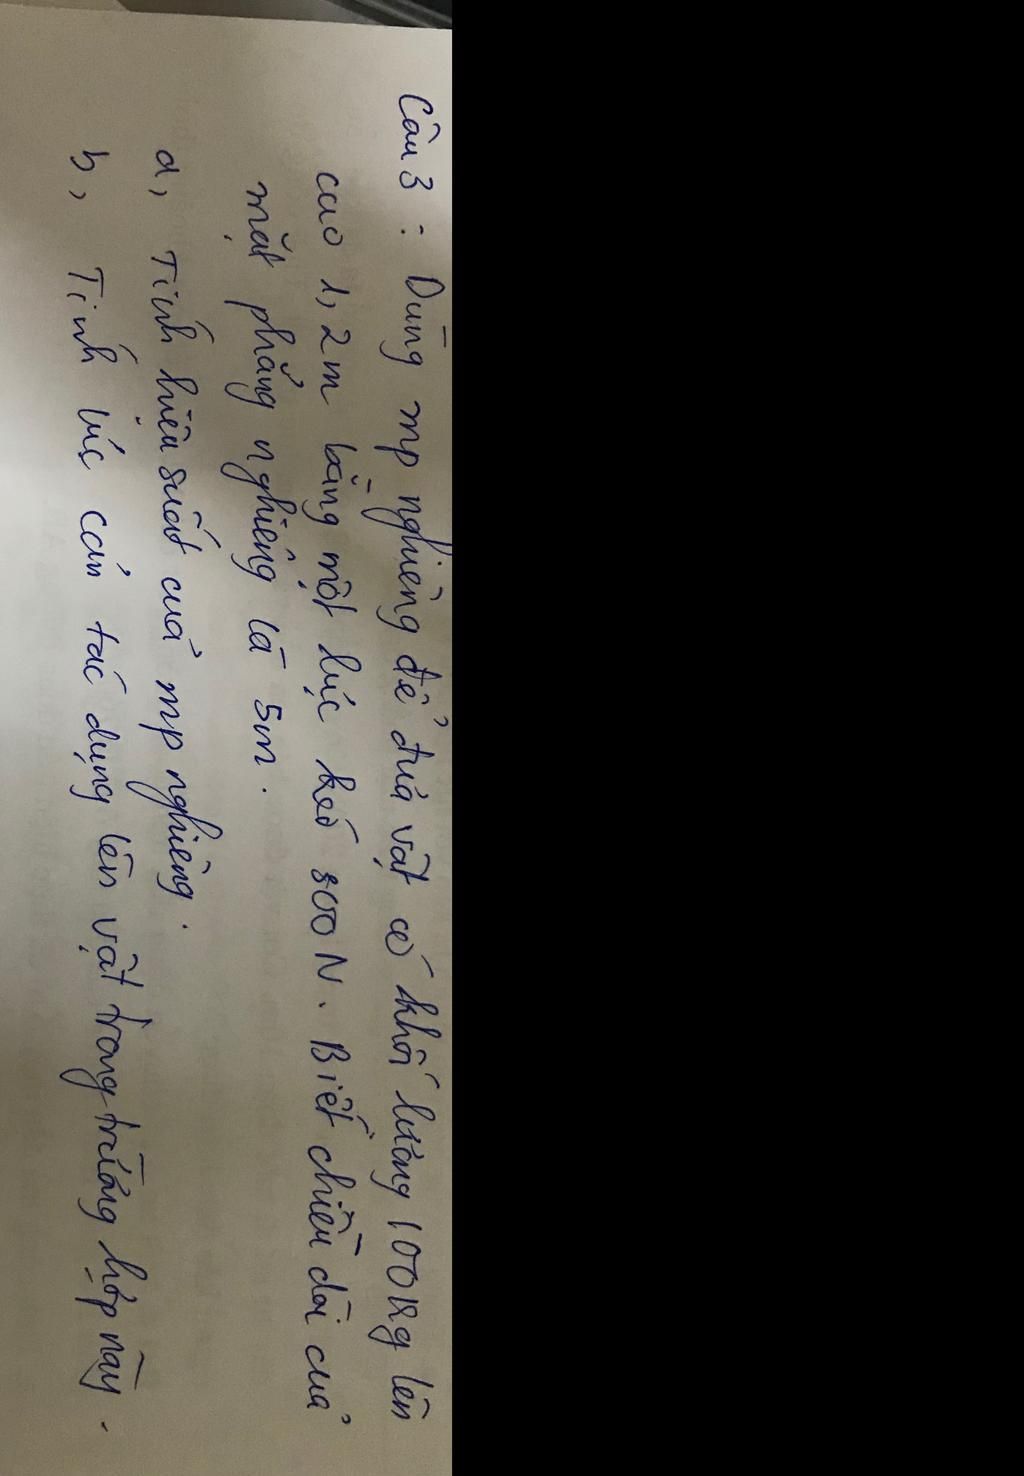 Câu 3 : Dùng mp nghiêng để đưa vật có khối lượng 100kg lên
cao 1,2m bằng một lực kéo 300N. Biết chiều dài của
mặt phẳng nghiêng là 5m.
a, Tính hiệu suất của mp nghiêng.
b, Tính lực cản tác dụng lên vật trong trường hợp này.